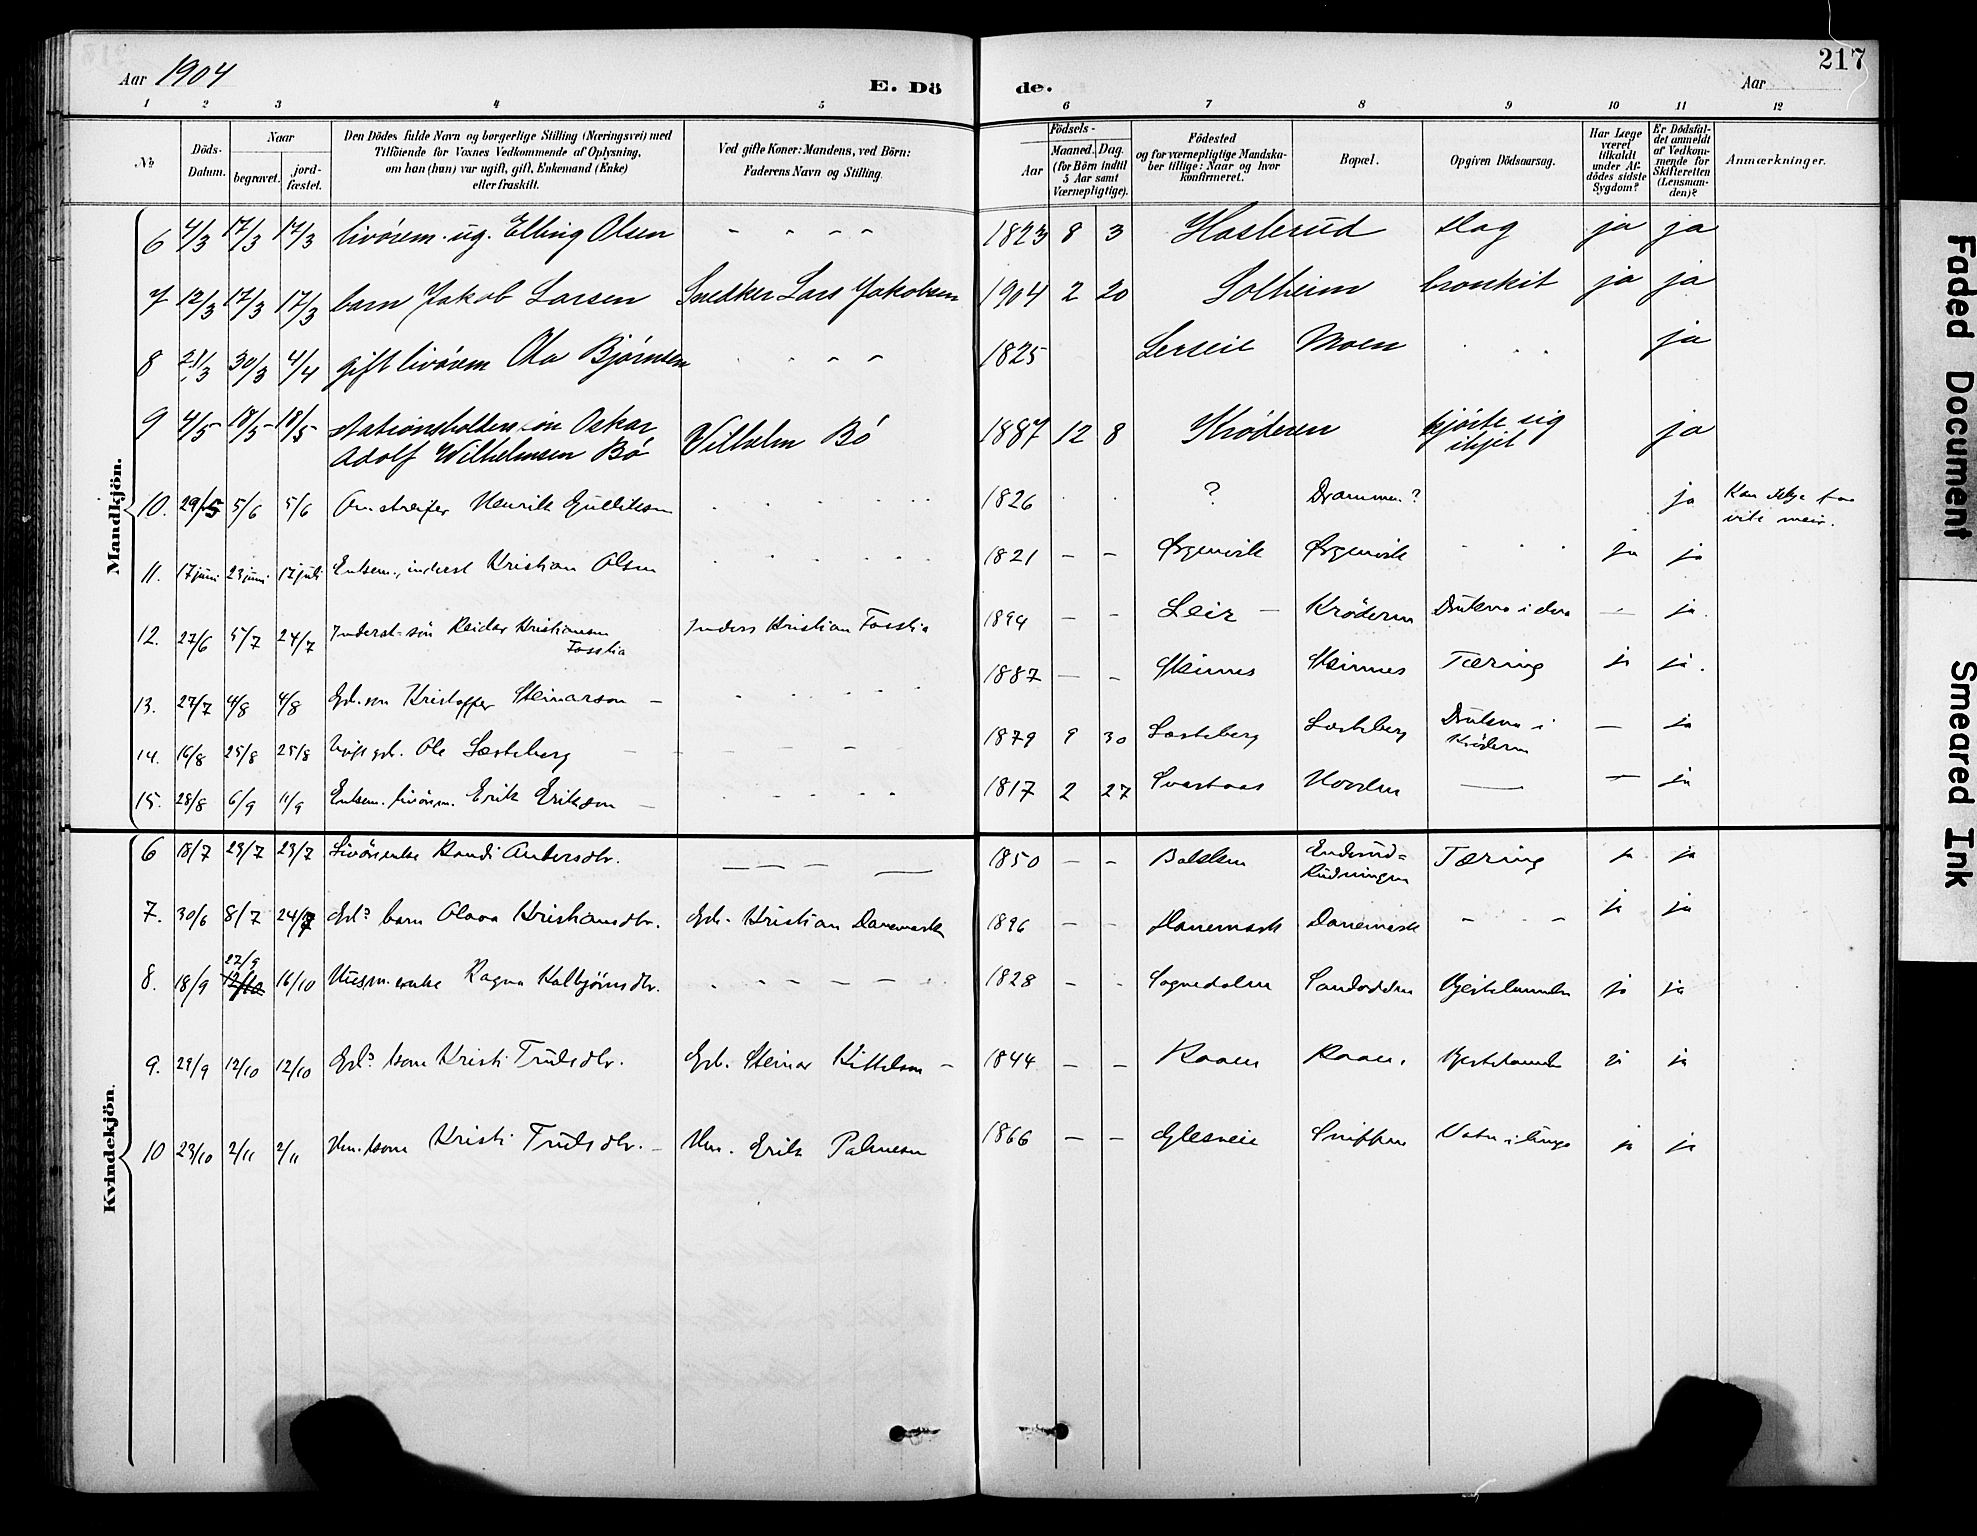 217
Aar 1904
E. Dö
de.
Aar
1 2 3 4 5 6 7 8 9 10 11 12
No
Döds-Datum.
Naar
begravet.
jordfæstet.
Den Dödes fulde Navn og borgerlige Stilling (Næringsvei) med
Tilföiende for Voxnes Vedkommende af Oplysning,
om han (hun) var ugift, gift, Enkemand (Enke)
eller fraskilt.
Ved gifte Koner: Mandens, ved Börn:
Faderens Navn og Stilling.
Födsels-
Aar
Maaned. Dag.
(for Börn indtil
5 Aar samt
Værnepligtige).
Födested
og for værnepligtige Mandska-
ber tillige: Naar og hvor
konfirmeret.
Bopæl.
Opgiven Dödsaarsag.
Har Læge
været
tilkaldt
under Af-
dödes sidste
Sygdom?
Er Dödsfal-
det anmeldt
af Vedkom-
mende for
Skifteretten
(Lensman-
den)?
Anmærkninger.
Mandkjön.
6 4/3 17/3 17/3 livörem. ug. Elling Olsen - - - - 1823 8 3 Hasterud slag ja ja
7 12/3 17/3 17/3 barn Jakob Larsen Snedker Lars Jakobsen 1904 2 20 Solheim bronkit ja ja
8 21/3 30/3 4/4 gift livörem Ola Björnsen 1825 Lerseie Moen ja
9 4/5 18/5 18/5 Stationsholders sön Oskar
Adolf Wilhelmsen Bö Vilhelm Bö 1887 12 8 Kröderen kjörte sig
ihjel ja
10. 29/5 5/6 5/6 Omstreifer Henrik Gulliksen 1826 ? Drammen? ja
11. 17 juni 23 juni 17 juli Enkem., inderst Kristian Olsen 1821 - - Ørgenvik Ørgenvik ja ja
12. 27/6 5/7 24/7 Inderst-sön Reidar Kristiansen
Fosslia Inders Kristian Fosslia 1894 - - Leir - Kröderen Drukna i elva - ja.
13. 27/7 4/8 4/8 Gbr. sön Kristoffer Steinarson - 1887 - - Skinnes Skinnes Tæring ja ja.
14. 16/8 25/8 25/8 Ugift gbr. Ole Lesteberg - - - - 1879 9 30 Lesteberg Lesteberg Drukna i
Kröderen - ja
15. 28/8 6/9 11/9 Enkem. livörem. Erik Erikson - 1817 2 27 Svartaas Hovden - - ja
Kvindekjön.
6 18/7 23/7 23/7 Livörenke Randi Andersdtr. - - - - 1850 - - Bakken Enderud-
Rudningen Tæring ja ja
7. 30/6 8/7 24/7 Gbr barn Olava Kristiansdtr. Gbr. Kristian Danemark 1896 - - Danemark Danemark - - - ja ja
22/9
8. 18/9 12/10 16/10 Husm. enke Ragna Kolbjörnsdtr. 1828 - - Sognedalen Sandodden Hjertelammelse ja ja
9. 29/9 12/10 12/10 Gbr kone Kristi Trulsdtr. Gbr. Steinar Kittelson - 1844 - - Raaen Raaen. Hjertelammelse ja ja
10 23/10 2/11 2/11 Hm. kone Kristi Trulsdtr. - Hm. Erik Palmesen 1866 - - Glesneie Vatn i lunga ja ja
Faded Document
Smeared Ink